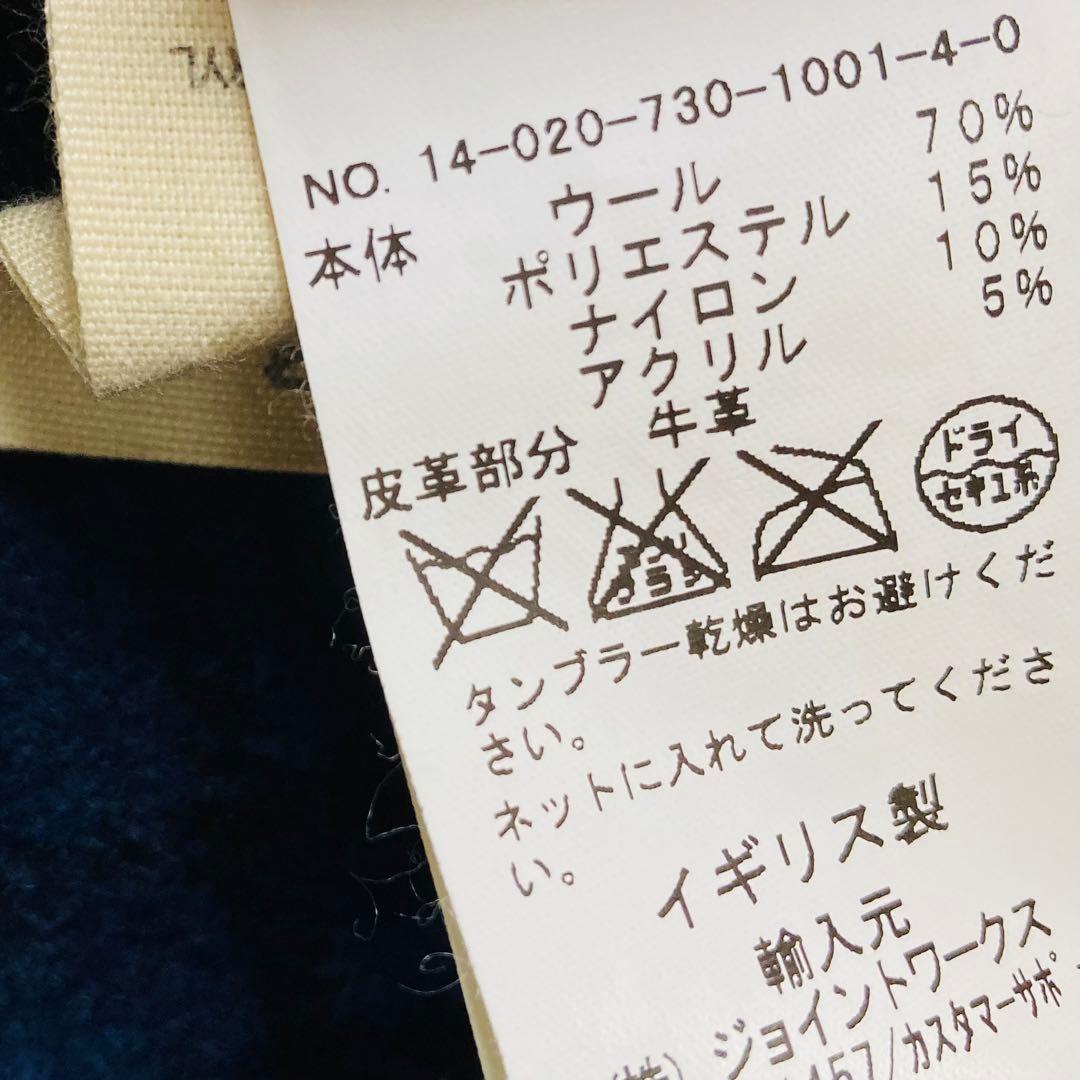 NO. 14-020-730-1001-4-0
本体 ウール 70%
ポリエステル 15%
ナイロン 10%
アクリル 5%
皮革部分 牛革
ドライ
セキユ系
タンブラー乾燥はお避けくだ
さい。
ネットに入れて洗ってくださ
い。
イギリス製
輸入元
(株) ジョイントワークス
457/カスタマーサポ